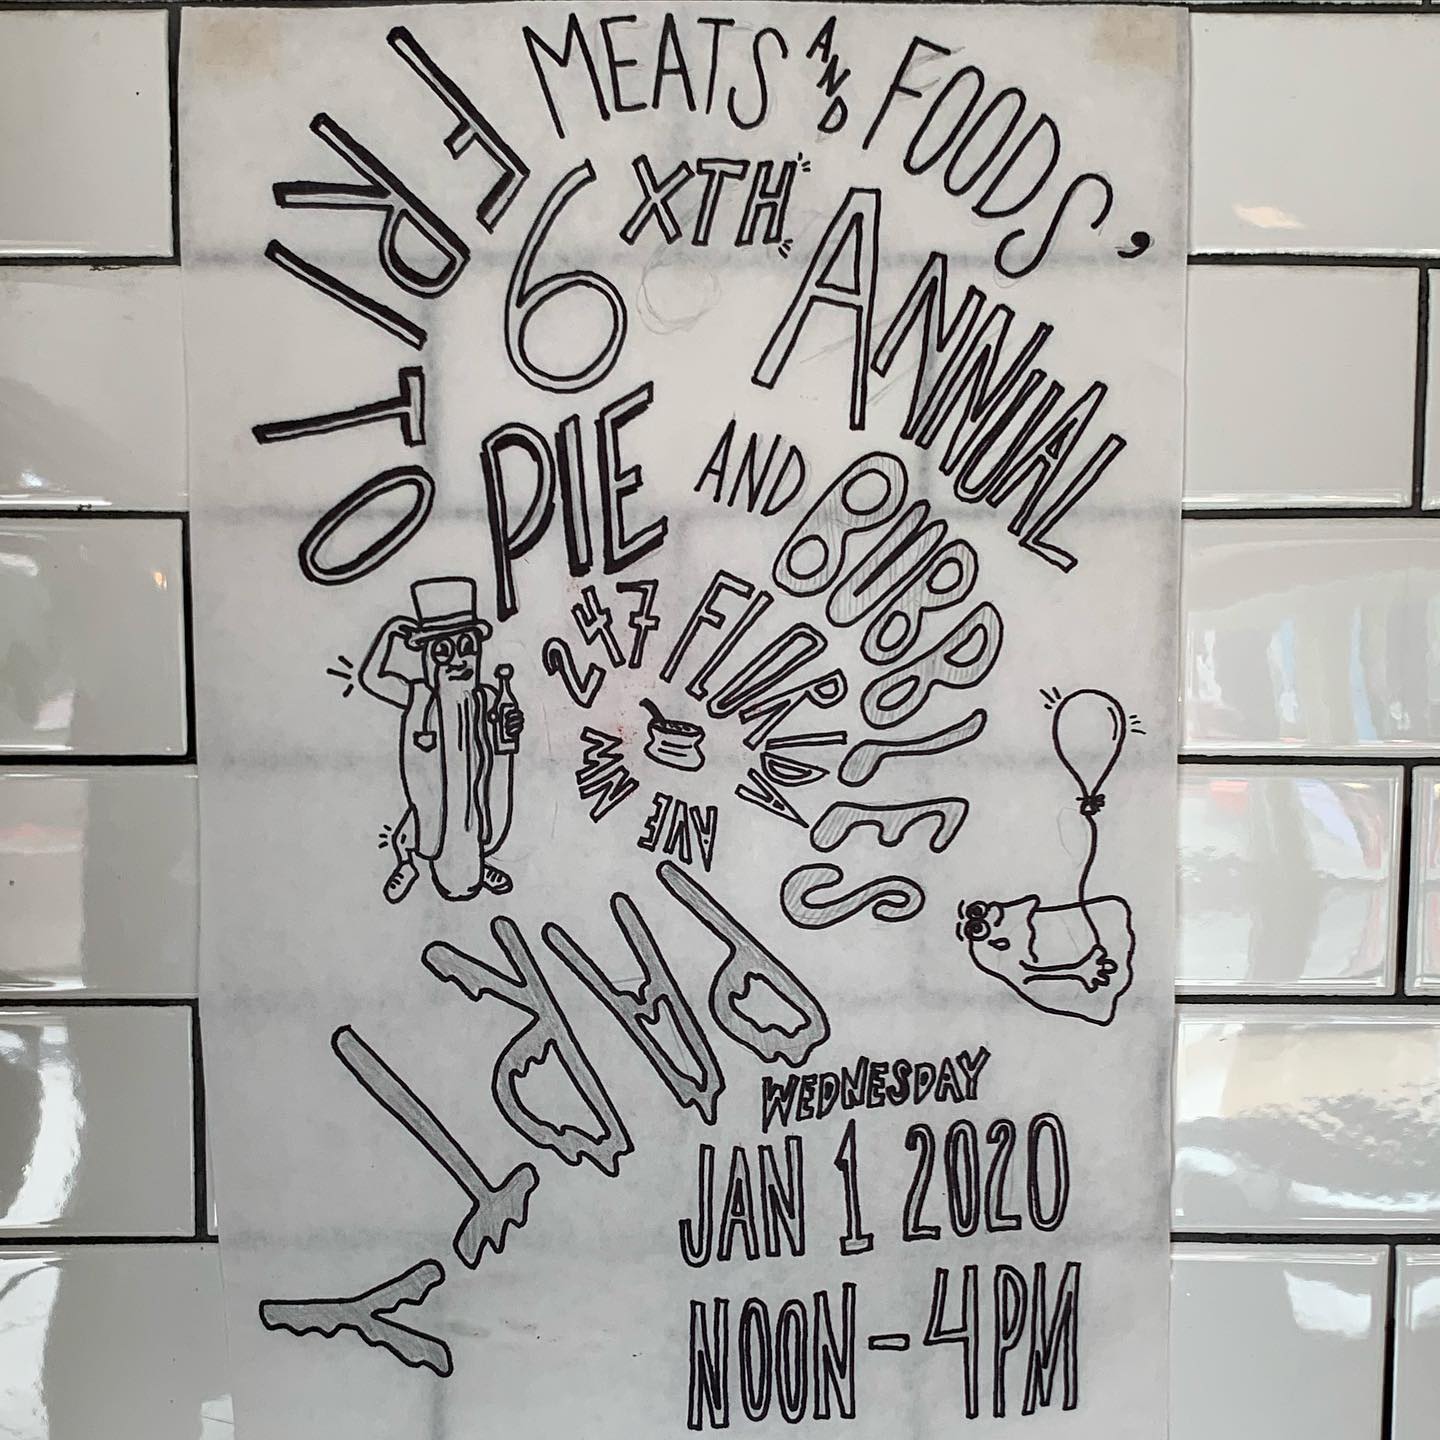 MEATS AND FOODS'
6XTH ANNUAL
FRITO
PIE AND BUBBLES
PARTY
247 FLORIDA AVE NW
WEDNESDAY
JAN 1 2020
NOON-4PM